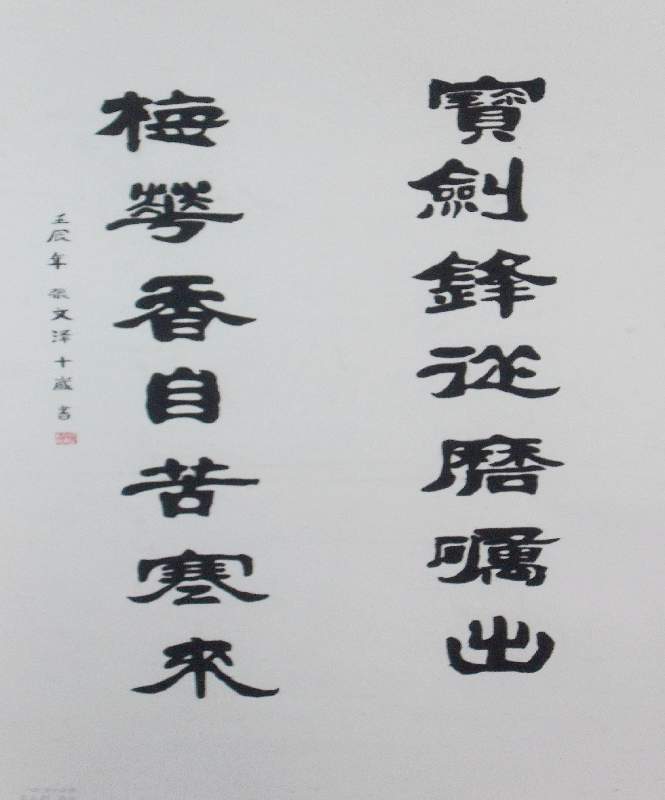 寶劍鋒從磨礪出
梅花香自苦寒來
壬辰年 张文泽十歲書